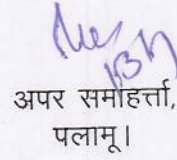 अपर समाहर्त्ता,
पलामू।